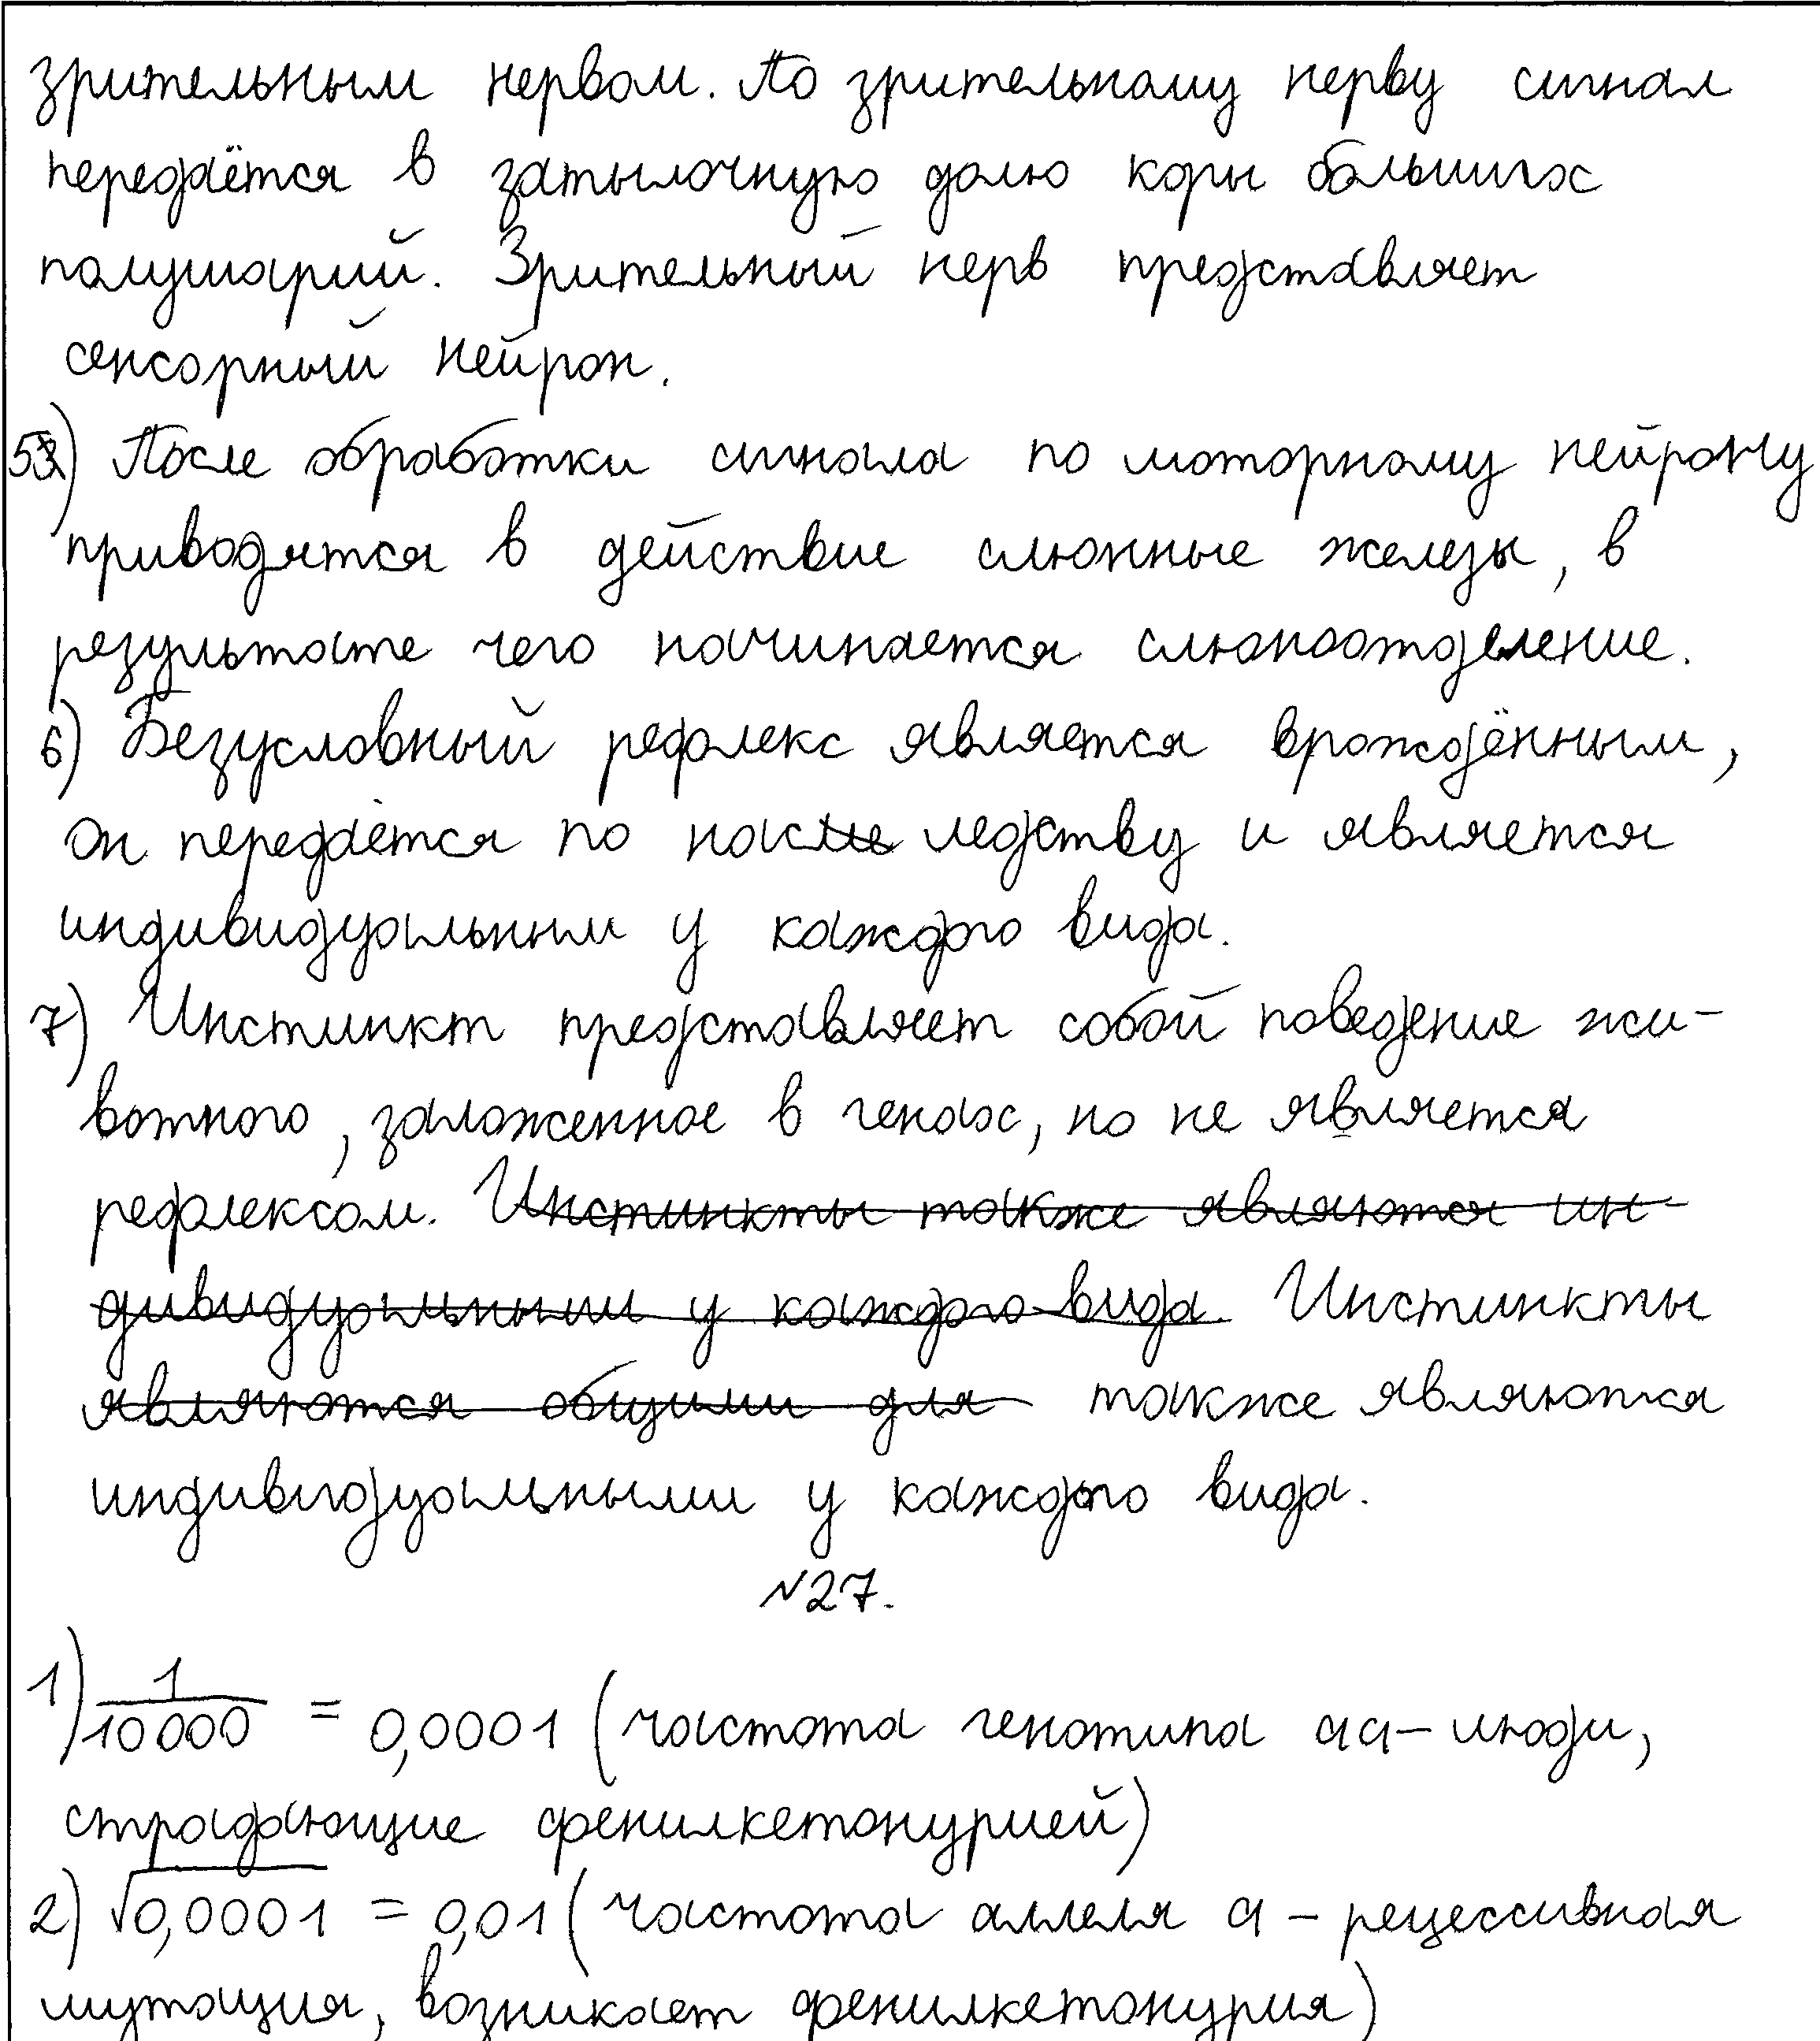 зрительным нервом. По зрительному нерву сигнал
передаётся в затылочную долю коры больших
полушарий. Зрительный нерв представляет
сенсорный нейрон.
5) После обработки сигнала по моторному нейрону
приводятся в действие слюнные железы, в
результате чего начинается слюноотделение.
6) Безусловный рефлекс является врождённым,
он передаётся по наследству и является
индивидуальным у каждого вида.
7) Инстинкт представляет собой поведение жи-
вотного, заложенное в генах, но не является
рефлексом. Инстинкты также являются ин-
дивидуальными у каждого вида. Инстинкты
являются общими для также являются
индивидуальными у каждого вида.
№27.
1) 1/10000 = 0,0001 (частота генотипа aa – люди,
страдающие фенилкетонурией)
2) √0,0001 = 0,01 (частота аллеля a – рецессивная
мутация, возникает фенилкетонурия)